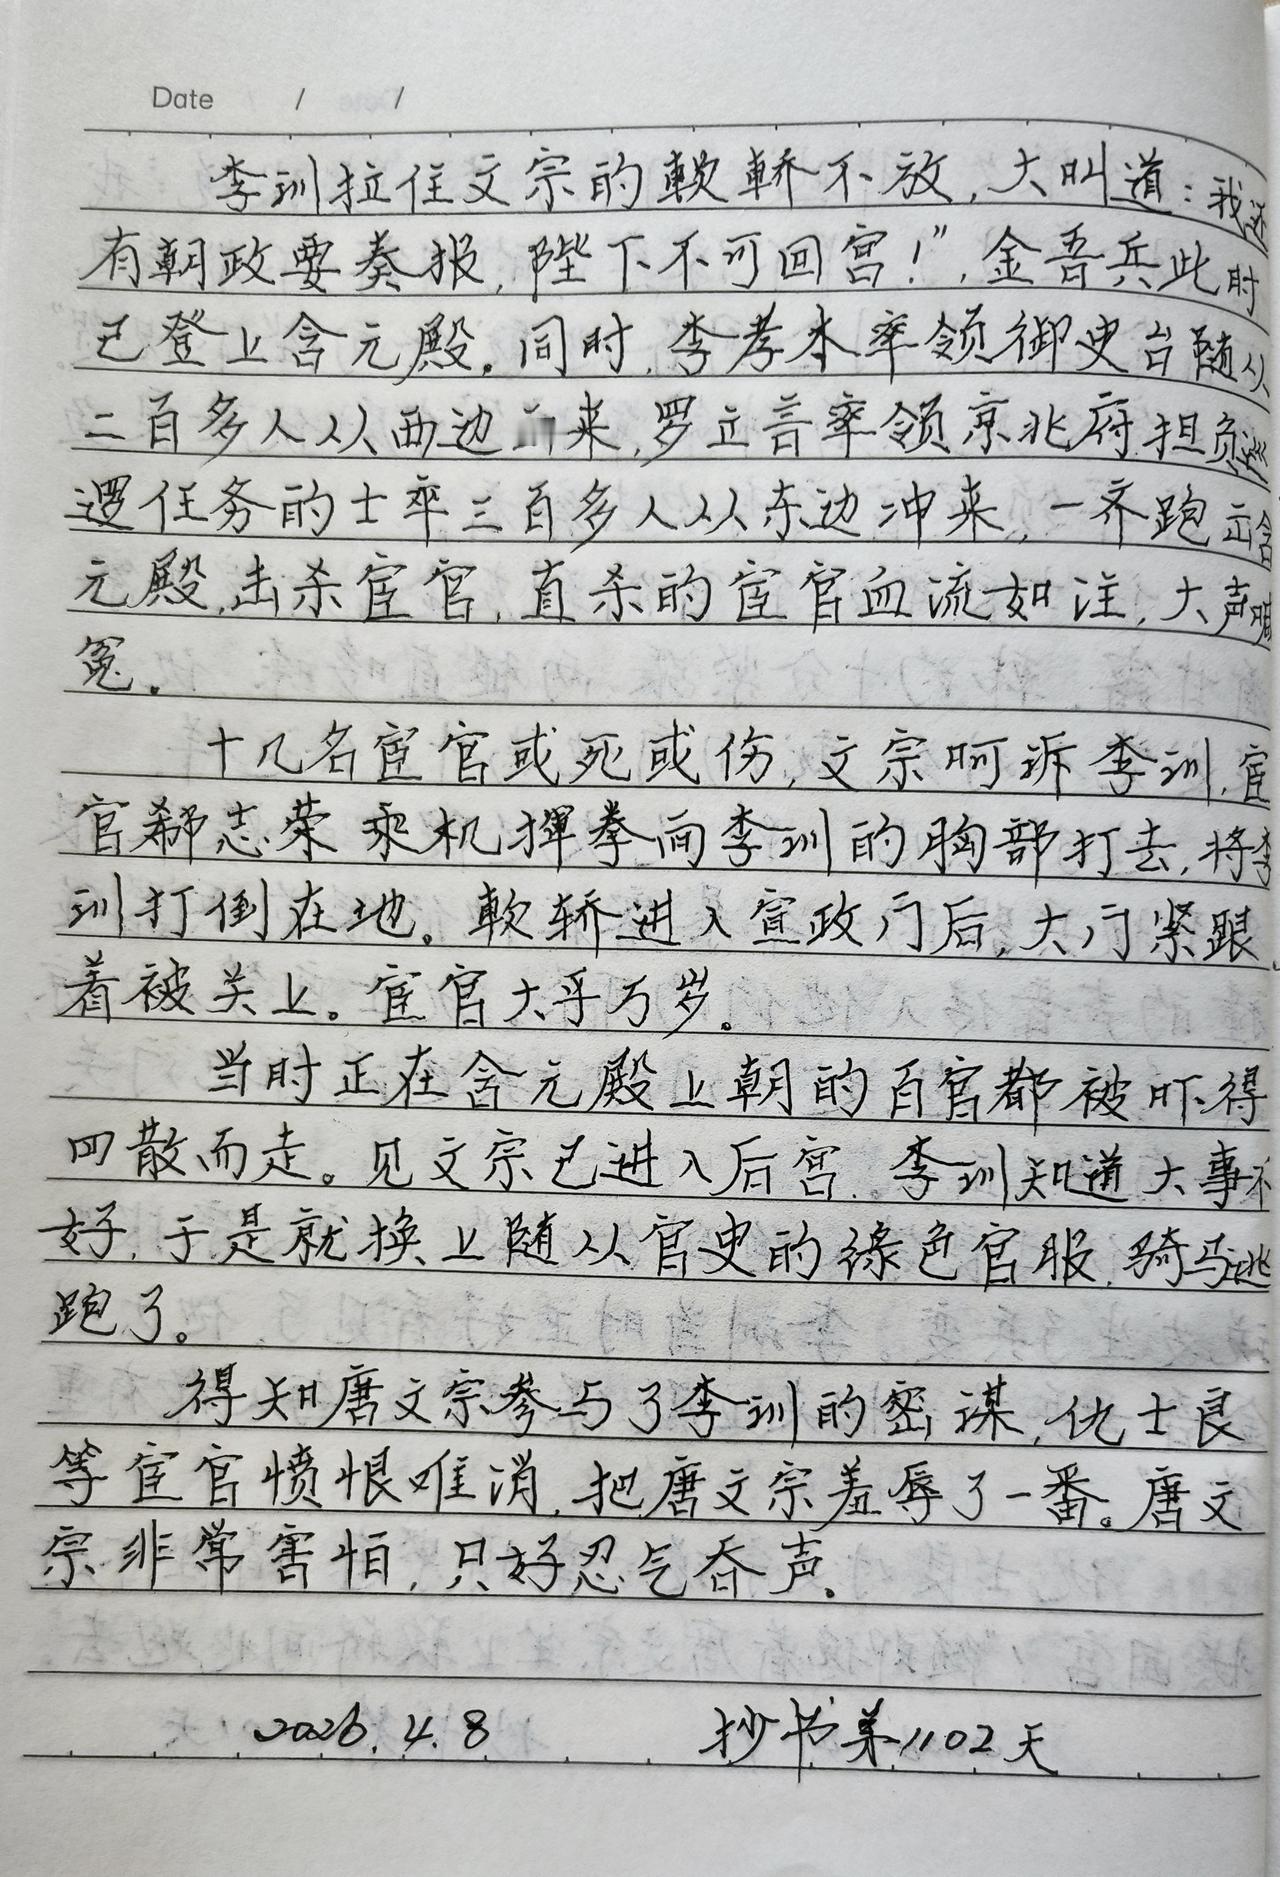 Date / /
李训拉住文宗的软轿不放，大叫道：我还
有朝政要奏报，陛下不可回宫！”，金吾兵此时
已登上含元殿。同时，李孝本率领御史台随从
二百多人从西边 来，罗立言率领京兆府担负巡
逻任务的士卒三百多人从东边冲来，一齐跑 含
元殿，击杀宦官，直杀的宦官血流如注，大声喊
冤。
十几名宦官或死或伤，文宗呵诉李训，宦
官郗志荣乘机挥拳向李训的胸部打去，将李
训打倒在地。软轿进入宣政门后，大门紧跟
着被关上。宦官大乎万岁。
当时正在含元殿上朝的百官都被吓得
四散而走。见文宗已进入后宫。李训知道大事不
好，于是就换上随从官史的绿色官服，骑马逃
跑了。
得知唐文宗参与了李训的密谋，仇士良
等宦官愤恨难消，把唐文宗羞辱了一番。唐文
宗非常害怕，只好忍气吞声。
2026.4.8 抄书第1102天